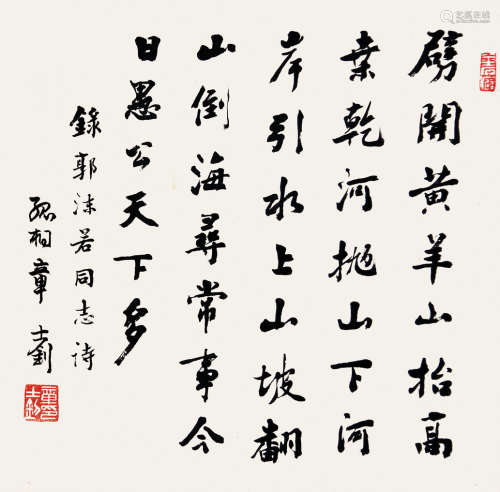 劈開黄羊山抬高
桒乾河抛山下河
岸引水上山坡翻
山倒海尋常事今
日愚公天下多
錄郭沫若同志诗
孤桐章士釗